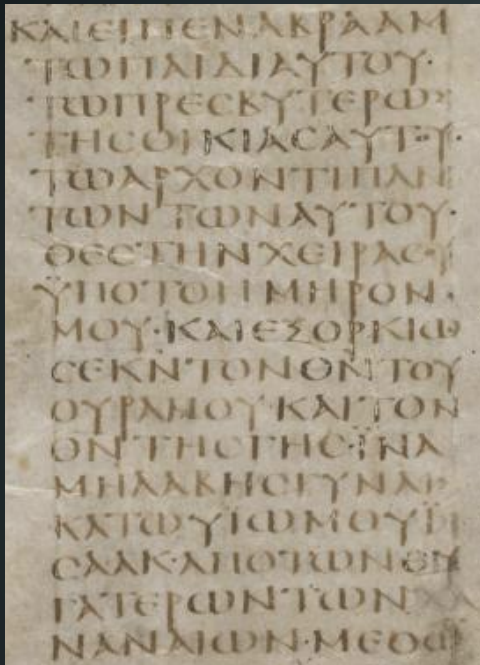 ΚΑΙΕΙΠΕΝΑΒΡΑΑΜ
ΤΩΠΑΙΔΙΑΥΤΟΥ·
ΤΩΠΡΕϹΒΥΤΕΡΩ
ΤΗϹΟΙΚΙΑϹΑΥΤΟΥ·
ΤΩΑΡΧΟΝΤΙΠΑΝ
ΤΩΝΤΩΝΑΥΤΟΥ·
ΘΕϹΤΗΝΧΕΙΡΑϹΟΥ
ΫΠΟΤΟΝΜΗΡΟΝ·
ΜΟΥ·ΚΑΙΕΞΟΡΚΙΩ
ϹΕΚ̅Ν̅ΤΟΝΘ̅Ν̅ΤΟΥ
ΟΥΡΑΝΟΥ·ΚΑΙΤΟΝ
Θ̅Ν̅ΤΗϹΓΗϹ·ΪΝΑ
ΜΗΛΑΒΗϹΓΥΝΑΙ
ΚΑΤΩΥΙΩΜΟΥΪ
ϹΑΑΚ·ΑΠΟΤΩΝΘΥ
ΓΑΤΕΡΩΝΤΩΝΧΑ
ΝΑΝΑΙΩΝ·ΜΕΘΩ